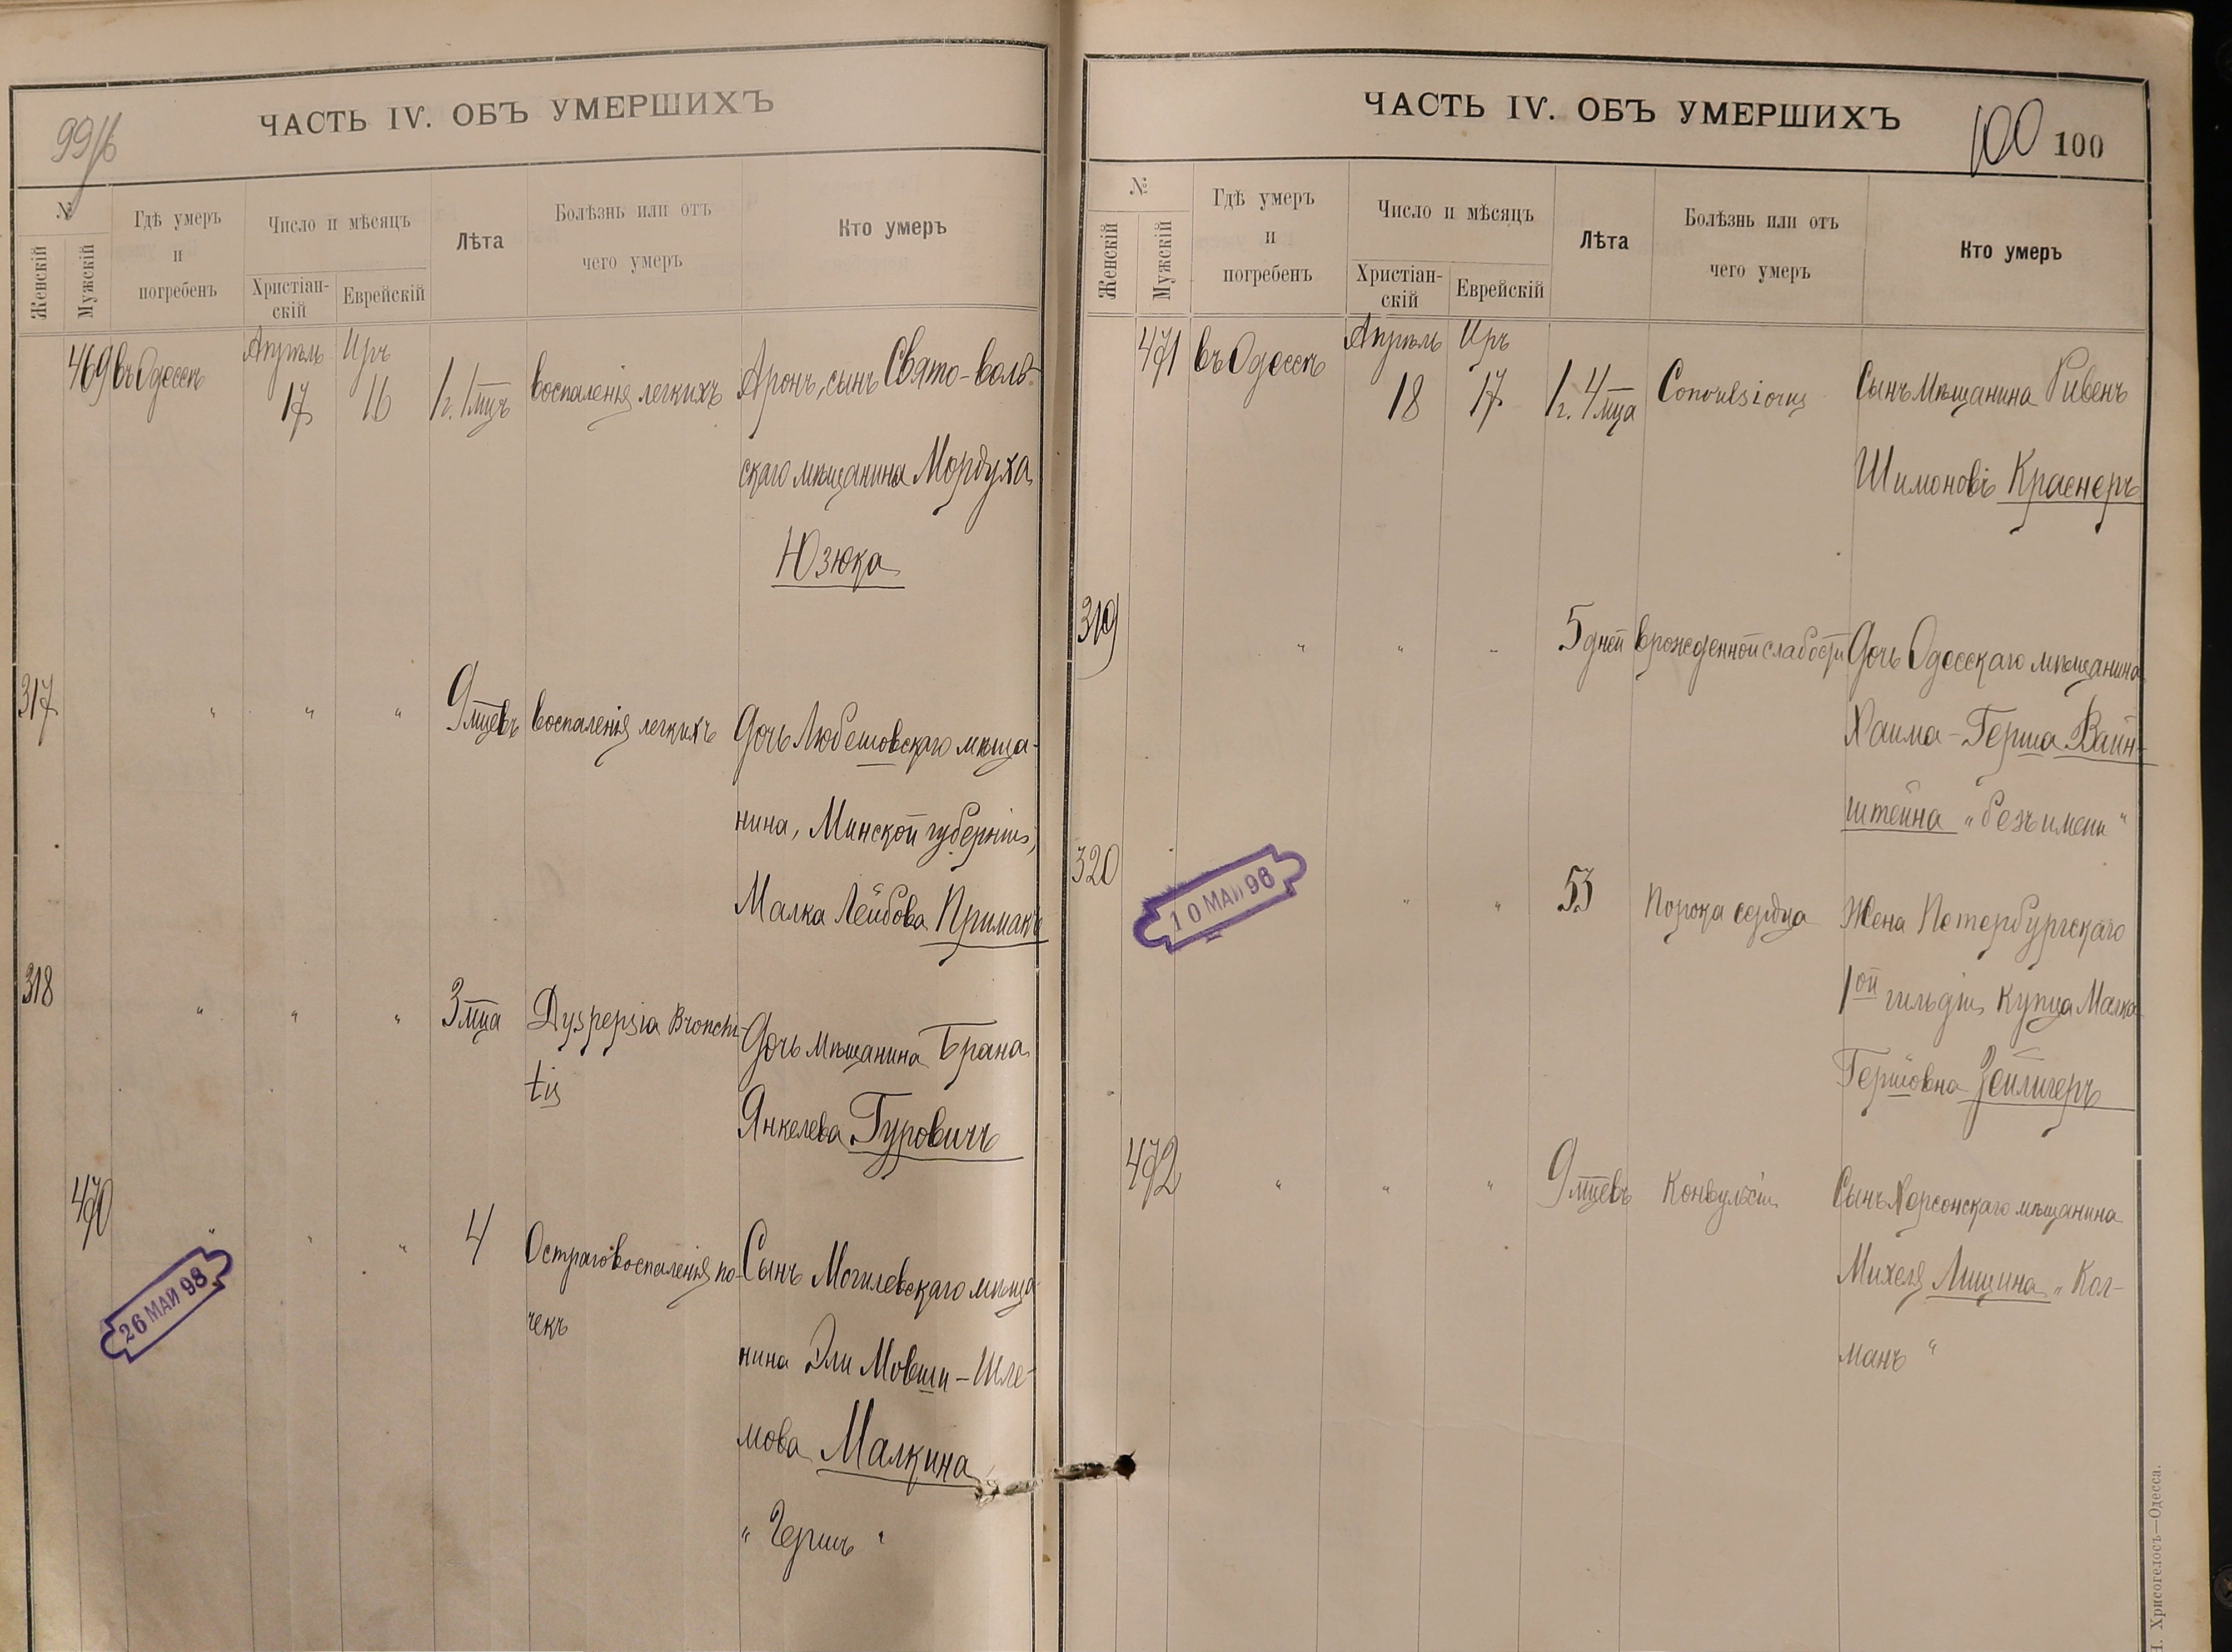 ЧАСТЬ IV. ОБЪ УМЕРШИХЪ
№
Женскій
Мужскій
Гдѣ умеръ
и
погребенъ
Число и мѣсяцъ
Христіан-
скій
Еврейскій
Лѣта
Болѣзнь или отъ
чего умеръ
Кто умеръ
469 въ Одессѣ Апрѣль 17 Иръ 16 1 г. 1 мцъ воспаленія легкихъ Аронъ, сынъ Свято-воль-
скаго мѣщанина Мордуха
Юзюка
317 " " " 9 мцевъ воспаленія легкихъ Дочь Любешовскаго мѣща-
нина, Минской губерніи,
Малка Лейбова Примакъ
318 " " " 3 мца Dyspepsia Bronchi- Дочь мѣщанина Брана
tis
Янкелева Гуровичъ
470 " " " 4 Остраго воспаленія по- Сынъ Могилевскаго мѣща-
чекъ
нина Эли Мовши-Шле-
мова Малкина
" Гершъ "
26 МАЙ 98
ЧАСТЬ IV. ОБЪ УМЕРШИХЪ
100 100
№
Женскій
Мужскій
Гдѣ умеръ
и
погребенъ
Число и мѣсяцъ
Христіан-
скій
Еврейскій
Лѣта
Болѣзнь или отъ
чего умеръ
Кто умеръ
471 въ Одессѣ Апрѣль 18 Иръ 17 1 г. 4 мца Convulsiones Сынъ мѣщанина Рувенъ
Шимоновъ Краснеръ
319 " " " 5 дней врожденной слабости Дочь Одесскаго мѣщанина
Хаима-Герша Вайн-
штейна "безъ имени"
320 " " 53 Порока сердца Жена Петербургскаго
10 МАЙ 96
1ой гильдіи купца Малка
Гершовна Зейлигеръ
472 " " " 9 мцевъ Конвульсіи Сынъ Херсонскаго мѣщанина
Михеля Лищина "Кол-
манъ"
Н. Хрисогелосъ—Одесса.